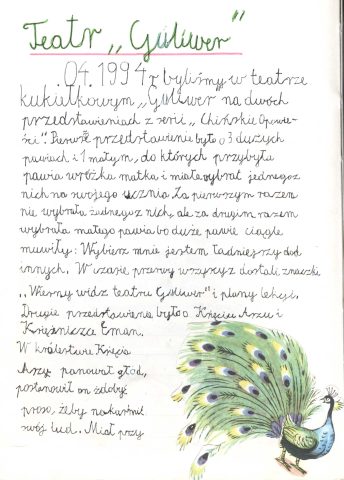 Teatr „Guliwer"
04.1994r byliśmy w teatrze
kukiełkowym „Guliwer na dwóch
przedstawieniach z serii „Chińskie Opowie-
ści". Pierwsze przedstawienie było o 3 dużych
pawiach i 1 małym, do których przybyła
pawia wróżka matka i miała wybrać jednego z
nich na swojego ucznia. Za pierwszym razem
nie wybrała żadnego z nich, ale za drugim razem
wybrała małego pawia bo duże pawie ciągle
muwiły: Wybierz mnie jestem ładniejszy od
innych. W czasie przerwy wszyscy dostali znaczki
„Wierny widz teatru Guliwer" i plany lekcji.
Drugie przedstawienie było o Księciu Arzu i
Księżniczce Eman.
W królestwie Księcia
Arzu panował głód,
postanowił on zdobyć
proso, żeby nakarmić
swój lud. Miał przy